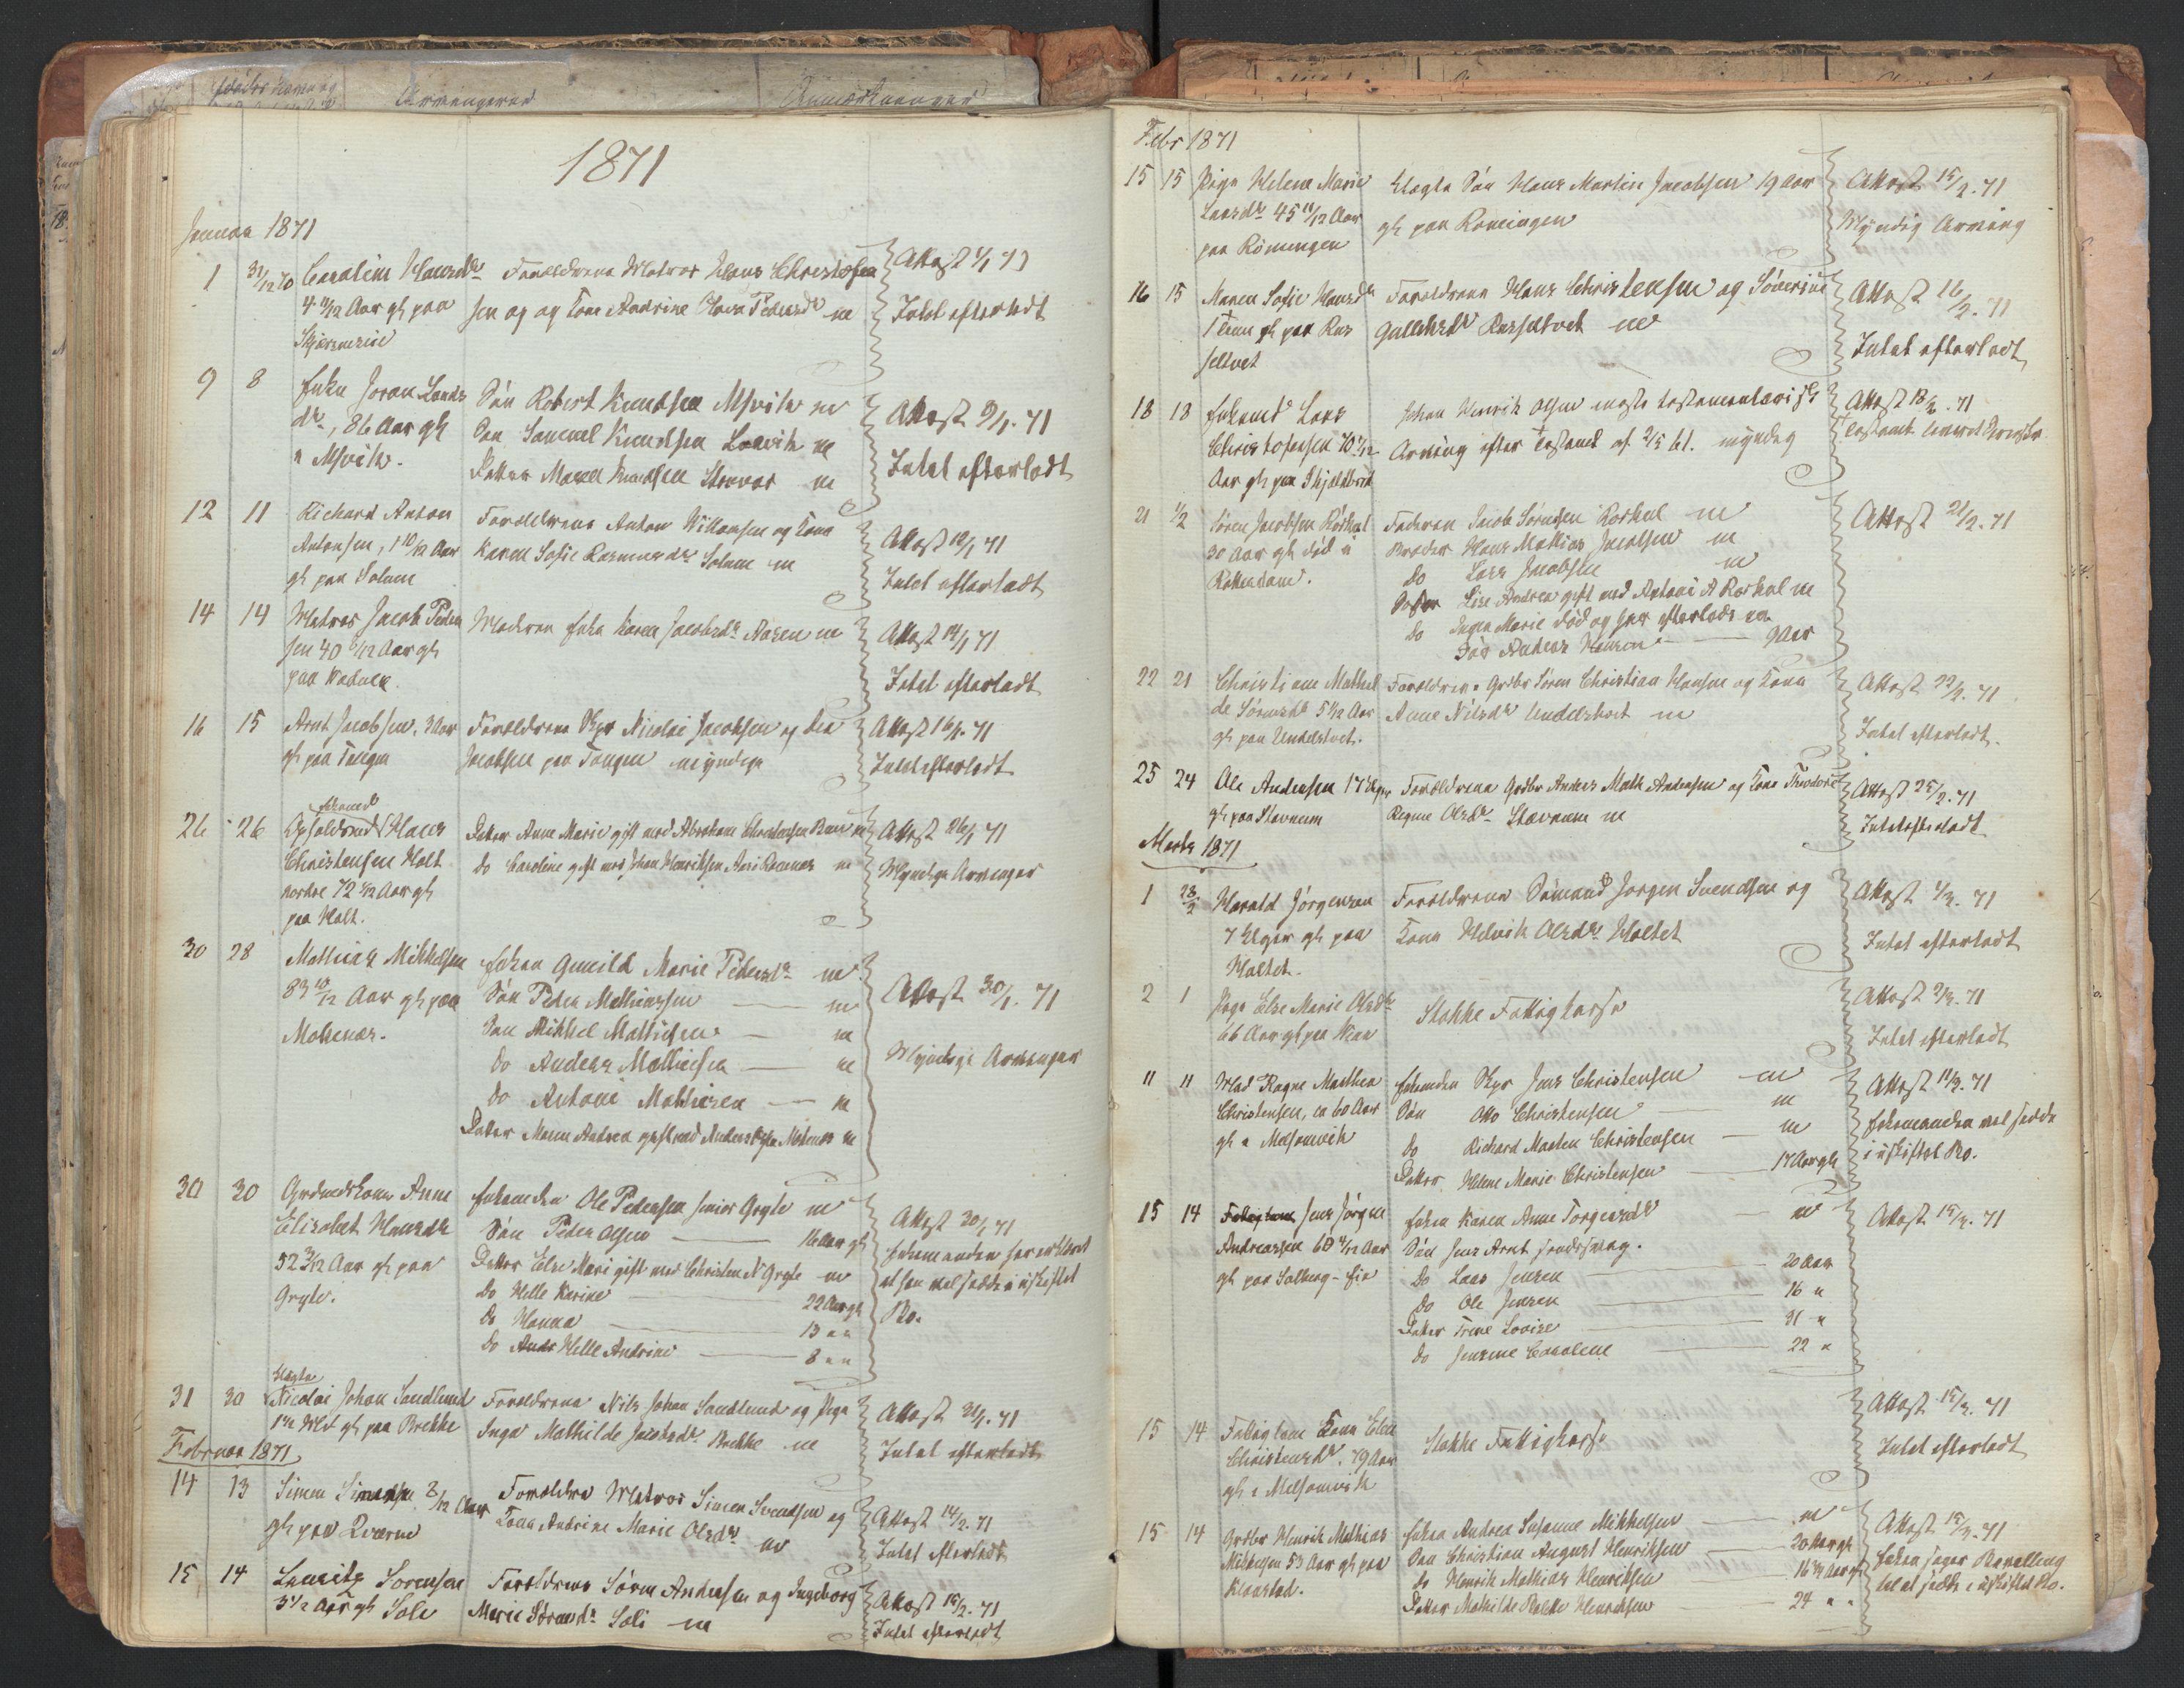 1871
Januar 1871
1 31/12 70 Carolin Hansdr Forældrene Matros Hans Christofer
4 11/12 Aar gl paa sen og og Kone Andrine Hova Pedersdr m
Attest 1/1 71
Intet efterladt
9 8 Enke Joran Lards
dr, 86 Aar gl
Søn Robert Knudsen m
Søn Samuel Knudsen Lervik m
Datter Maren Knudsen m
Attest 9/1. 71
Intet efterladt
12 11 Richard Anton
Antonsen, 1 10/12 Aar
gl paa Solum
Forældrene Anton Willumsen og Kone
Karen Sofie Rasmusdr Solum m
Attest 12/1 71
Intet efterladt
14 14 Matros Jacob Peder
sen 40 Aar gl
paa
Moderen Enke Karen Jacobsdr Aasen m
Attest 14/1 71
Intet efterladt
16 15 Arnt Jacobsen, 3 Aar
gl paa Tangen
Forældrene Skpr Nicolai Jacobsen og
Jacobsen paa Tangen myndige
Attest 16/1. 71
Intet efterladt
26 26 Hans
Christensen Holt
nordre 72 Aar gl
paa Holt.
Datter Anne Marie gift med Abraham Christensen m
do Caroline gift med Johan Henriksen m
Attest 26/1 71
Myndige Arvinger
30 28 Mathias Mikkelsen
83 10/12 Aar gl paa
Molenæs.
Enken Gunild Marie Pedersdr m
Søn Peder Mathiassen m
Søn Mikkel Mathisen m
do Anders Mathisen m
do Antoni Mathisen m
Datter Maren Andrea gift med Anders m
Attest 30/1. 71
Myndige Arvinger
30 30 Anne
Elisabet Hansdr
52 3/12 Aar gl paa
Gryte.
Enkemanden Ole Pedersen senior Gryte m
Søn Peder Olsen 16 Aar gl
Datter Else Mari gift med Christen N Gryte m
do Helle Karine 22 Aar gl
do Hanna 13 " "
do Helle Andrine 8 " "
Attest 30/1 71
Enkemanden har erklæret
at han vel sidde i uskiftet
Bo.
31 30 Nicolai Johan Sandlund
gl paa Brekke
Forældrene Nils Johan Sandlund og Pige
Inga Mathilde Jacobsdr Brekke m
Attest 31/1. 71
Intet efterladt
Februar 1871
14 13 Simen 8/12 Aar
gl paa Qværne
Forældre Matros Simen Svendsen og
Kone Andrine Marie Olsdr m
Attest 14/2. 71
Intet efterladt
15 14 Lauritz Sorensen
3 1/2 Aar gl Sole
Forældrene Søren Andersen og Ingeborg
Marie Sørensdr Soli m
Attest 15/2. 71
Intet efterladt
Febr 1871
15 15 Pige Helene Marie
Larsdr 45 11/12 Aar
paa Rømingen
Uægte Søn Hans Martin Jacobsen 19 Aar
gl paa Rømingen
Attest 15/2. 71
Myndig Arving
16 15 Maren Sofie Hansdr
gl paa Ras
seltvet
Forældrene Hans Christensen og Severine
Gulliksdr Rasseltvet m
Attest 16/2. 71
Intet efterladt
18 18 Enkemd Lars
Christofersen 70 Aar gl paa
Johan Henrik Olsen testamentarisk
Arving efter Testament af 2/5 61. myndig
Attest 18/2. 71
21 1/2 Søren Jacobsen Røskul
30 Aar gl død i
Rotterdam.
Faderen Jacob Sørensen Røskul m
Broder Hans Mathias Jacobsen m
do Lars Jacobsen m
Søster Lise Andrea gift med Antoni A Røskul m
do Inger Marie død og har efterladt en
Søn Anders 9 Aar
Attest 21/2. 71
22 21 Christiane Mathil
de Sørensdr 5 1/12 Aar
gl paa Undelstvet.
Forældrene Grdbr Søren Christian Hansen og Kone
Anne Nilsdr Undelstvet m
Attest 22/2. 71
Intet efterladt.
25 24 Ole Andersen 17 Uger
gl paa Stavnum
Forældrene Grdbr Anders Math Andersen og Kone Theodore
Regine Olsdr Stavnum m
Attest 25/2. 71
Intet efterladt
Marts 1871
1 28/2 Harald Jørgensen
7 Uger gl paa
Holtet.
Forældrene Sømand Jørgen Svendsen og
Kone Helvik Olsdr Holtet
Attest 1/3. 71
Intet efterladt
2 1 Pige Else Marie Olsdr
66 Aar gl paa
Stokke Fattigkasse
Attest 2/3. 71
Intet efterladt
11 11 Mad Ragne Marthea
Christensen, ca 60 Aar
gl i Melsomvik
Enkemanden Skpr Jens Christensen m
Søn Otto Christensen m
do Richard Martin Christensen m
Datter Helene Marie Christensen 17 Aar gl
Attest 11/3. 71
Enkemanden vel sidde
i uskiftet Bo.
15 14 Jens Jørgen
Andreassen 68 Aar
gl paa Solberg-
Enken Karen Anne Torgersdr m
Søn Jens Arnt
do Lars Jensen 20 Aar
do Ole Jensen 16 "
Datter Trine Lovise 31 "
do Jensine Caroline 22 "
Attest 15/3. 71
15 14 Fattiglem Kone Elen
Christensdr. 79 Aar
gl i Melsomvik
Stokke Fattigkasse
Attest 15/3. 71
Intet efterladt
15 14 Grdbr Henrik Mathias
Mikkelsen 53 Aar gl paa
Klavstad.
Enken Andrea Susanne Mikkelsen m
Søn Christian August Henriksen 20 Aar gl
do Henrik Mathias Henriksen 16 Aar gl
Datter Mathilde Henriksen 24 " "
Attest 15/3. 71
Enken
til at sidde i uskiftet Bo.